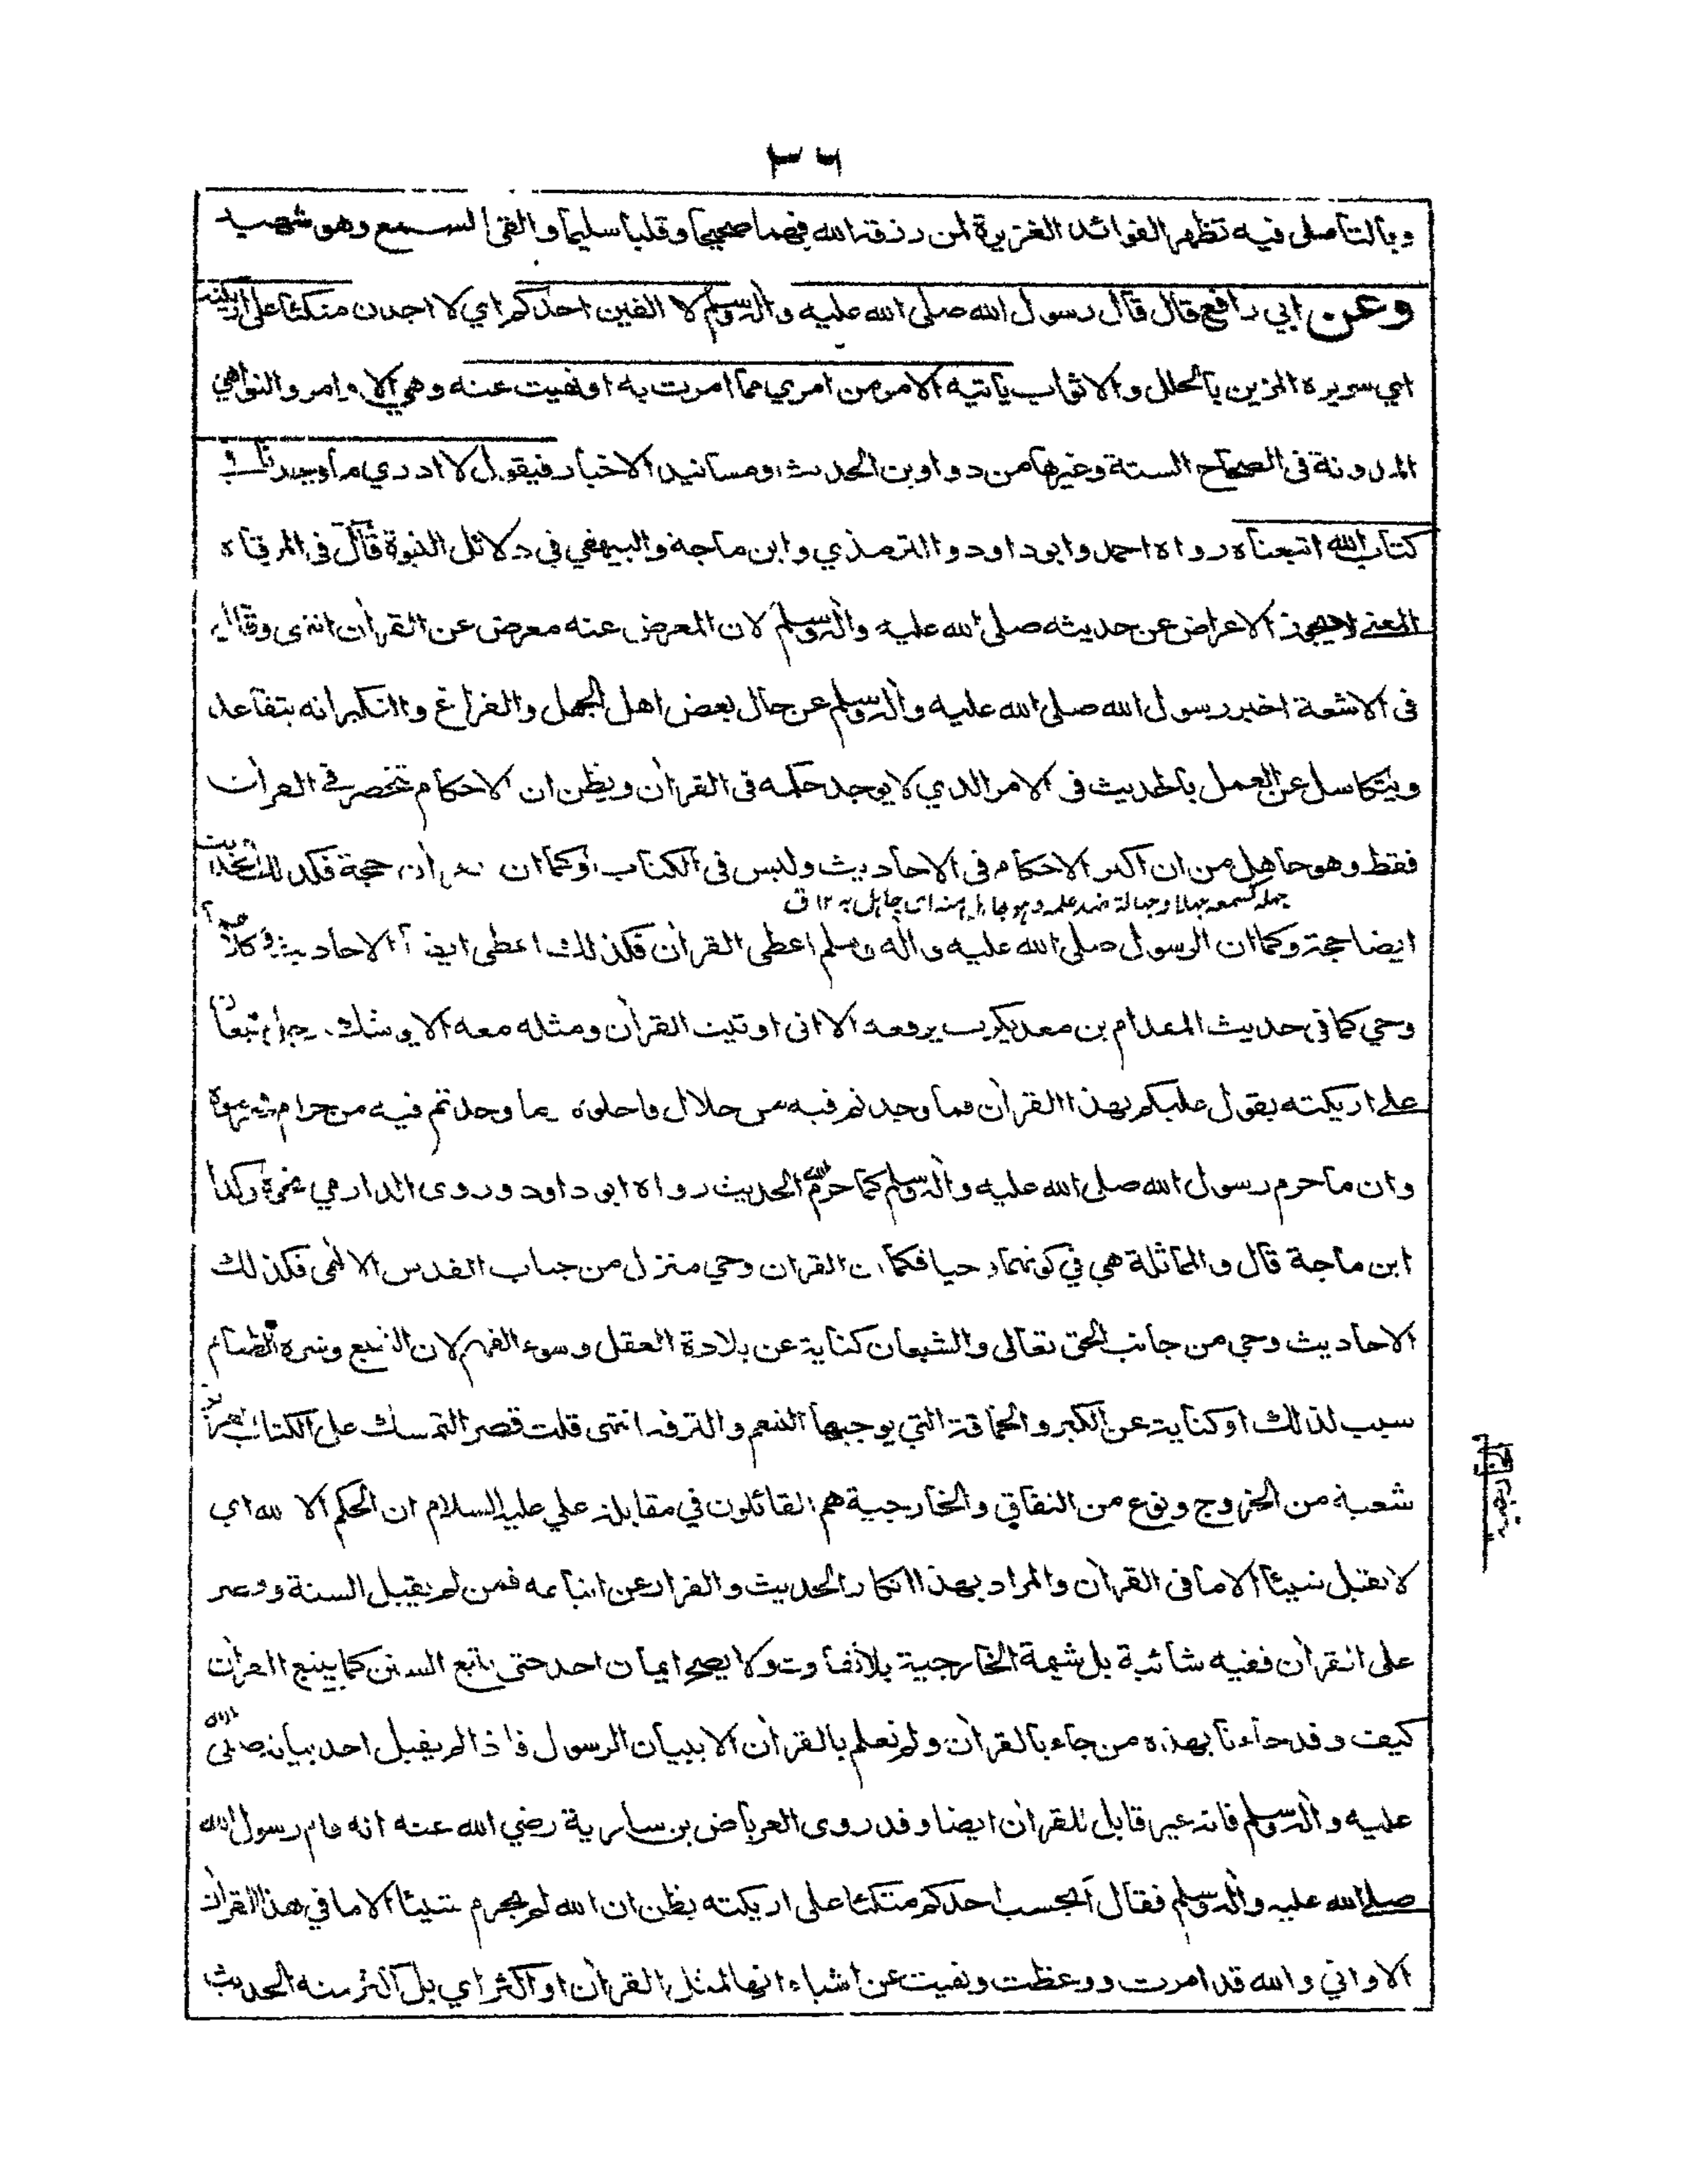 ٣٦
وبالتأمل فيه تظهر الفوائد الغزيرة لمن رزقه الله فهما صحيحا وقلبا سليما والقى السمع وهو شهيد
وعن ابي رافع قال قال رسول الله صلى الله عليه واله وسلم لا الفين احدكم اي لا اجدن متكئا على اريكته
اي سريره المزين بالحلل والاثواب يأتيه الامر من امري مما امرت به او نهيت عنه وهي الاوامر والنواهي
المدونة فى الصحاح الستة وغيرها من دواوين الحديث ومسانيد الاخبار فيقول لا ادري ما وجدنا في
كتاب الله اتبعناه رواه احمد وابو داود والترمذي وابن ماجة والبيهقي في دلائل النبوة قال فى المرقاة
المعنى لا يجوز الاعراض عن حديثه صلى الله عليه واله وسلم لان المعرض عنه معرض عن القرأن انتهى وقال
فى الاشعة اخبر رسول الله صلى الله عليه واله وسلم عن حال بعض اهل الجهل والفراغ والتكبر انه يتقاعد
ويتكاسل عن العمل بالحديث فى الامر الذي لا يوجد حكمه فى القرأن ويظن ان الاحكام تنحصر في القرأن
فقط وهو جاهل من ان اكثر الاحكام فى الاحاديث وليس فى الكتاب وكما ان القرأن حجة فكذلك الحديث
جهله كسمعه جهلا وجهالة ضد علمه وهو جاهل منه اى جاهل به ١٢ ق
ايضا حجة وكما ان الرسول صلى الله عليه واله وسلم اعطى القرأن فكذلك اعطى ايضا الاحاديث وكلاهما
وحي كما فى حديث المقدام بن معديكرب يرفعه الا انى اوتيت القرأن ومثله معه الا يوشك رجل شبعان
على اريكته يقول عليكم بهذا القرأن فما وجدتم فيه من حلال فاحلوه وما وجدتم فيه من حرام فحرموه
وان ما حرم رسول الله صلى الله عليه واله وسلم كما حرم الله الحديث رواه ابو داود وروى الدارمي نحوه وكذا
ابن ماجة قال والمماثلة هي في كونهما وحيا فكما ان القرأن وحي منزل من جناب القدس الالهى فكذلك
الاحاديث وحي من جانب الحق تعالى والشبعان كناية عن بلادة العقل وسوء الفهم لان الشبع وشره الطعام
سبب لذلك او كناية عن الكبر والحماقة التي يوجبها التنعم والترفه انتهى قلت قصر التمسك على الكتاب العزيز
شعبة من الخروج ونوع من النفاق والخارجية هم القائلون في مقابلة علي عليه السلام ان الحكم الا لله اي
لا نقبل شيئا الا ما فى القرأن والمراد بهذا انكار الحديث والفرار عن اتباعه فمن لم يقبل السنة وقصر
على القرأن ففيه شائبة بل شيمة الخارجية بلا تفاوت ولا يصح ايمان احد حتى يتبع السنن كما يتبع القرأن
كيف وقد جاءنا بهذه من جاء بالقرأن ولم نعلم بالقرأن الا ببيان الرسول فاذا لم يقبل احد بيانه صلى الله
عليه واله وسلم فانه غير قابل للقرأن ايضا وقد روى العرباض بن سارية رضي الله عنه انه قام رسول الله
صلى الله عليه واله وسلم فقال أيحسب احدكم متكئا على اريكته يظن ان الله لم يحرم شيئا الا ما في هذا القرأن
الا واني والله قد امرت ووعظت ونهيت عن اشياء انها لمثل القرأن او اكثر اي بل اكثر منه الحديث